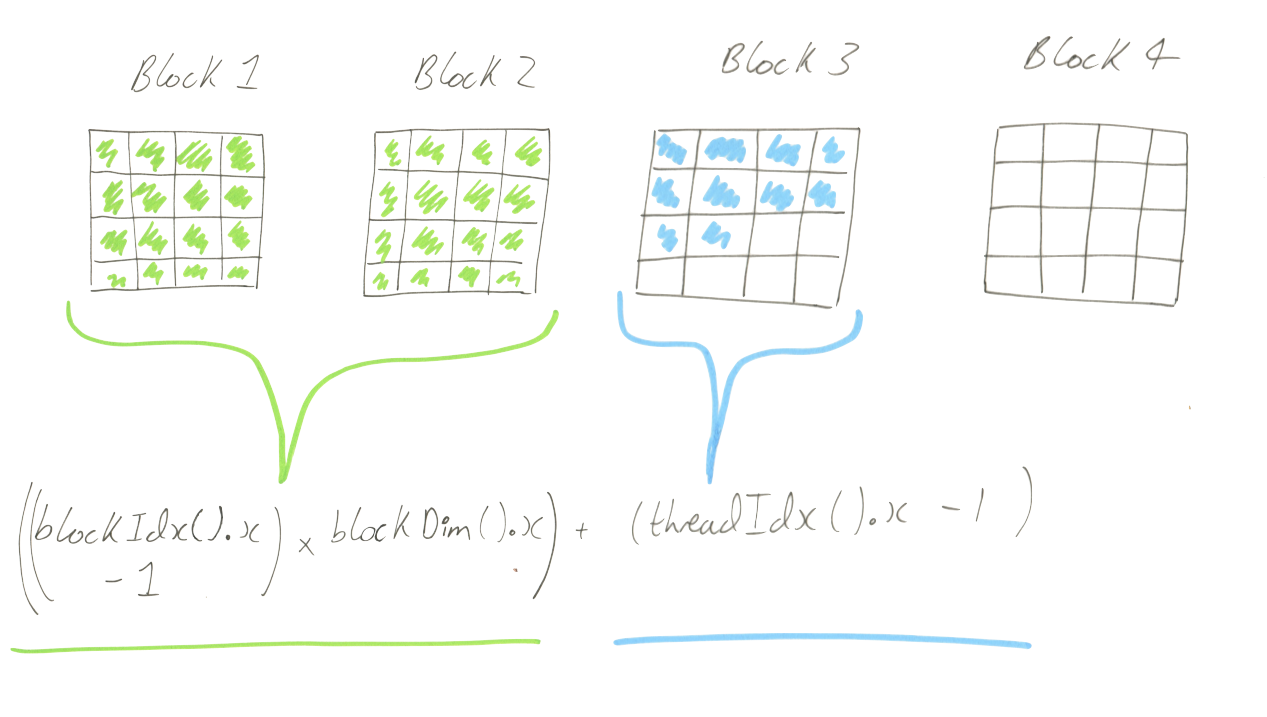 Block 1 Block 2 Block 3 Block 4
((blockIdx().x - 1) x blockDim().x) + (threadIdx().x - 1)